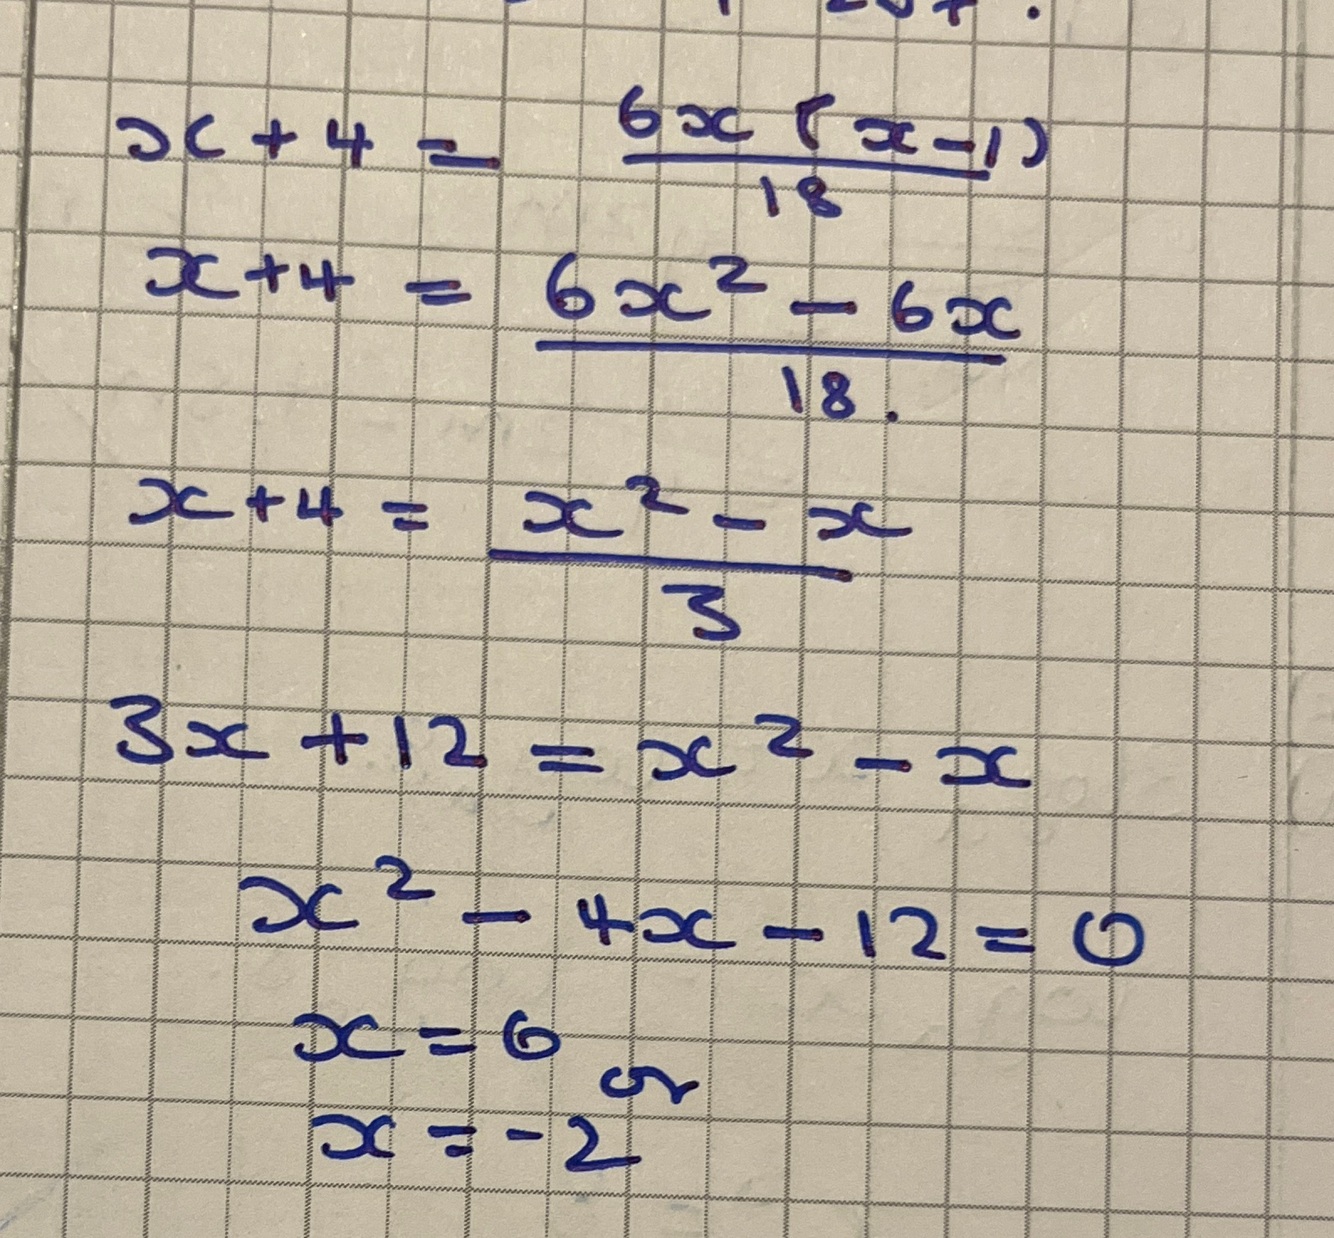 x + 4 = 6x (x - 1)
18
x + 4 = 6x² - 6x
18.
x + 4 = x² - x
3
3x + 12 = x² - x
x² - 4x - 12 = 0
x = 6
or
x = -2